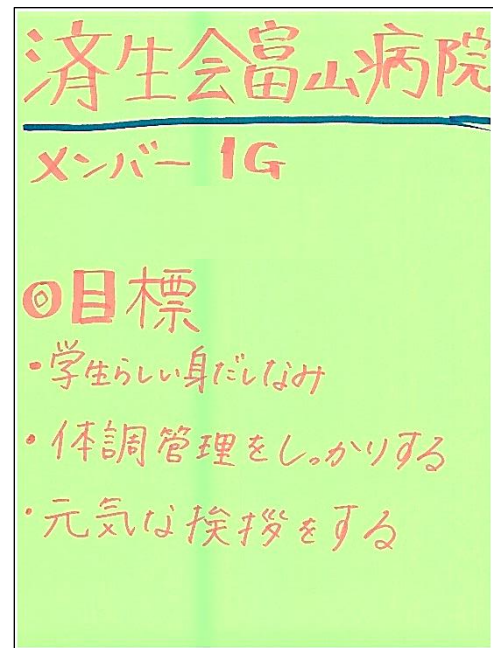 済生会富山病院
メンバー 1G
◎目標
・学生らしい身だしなみ
・体調管理をしっかりする
・元気な挨拶をする